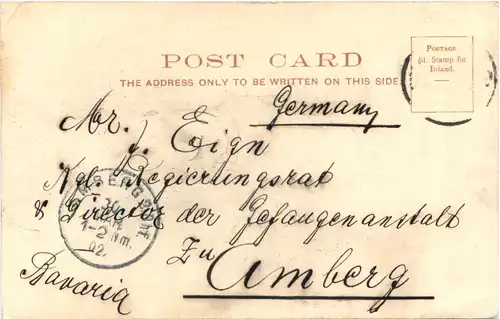 POST CARD
THE ADDRESS ONLY TO BE WRITTEN ON THIS SIDE
POSTAGE
½d. Stamp for
Inland.
Germany
Mr. J. Eign
Kgl. Regierungsrat
& Director der Gefangenanstalt
zu
Amberg
Bavaria
1-2 Nm.
02.